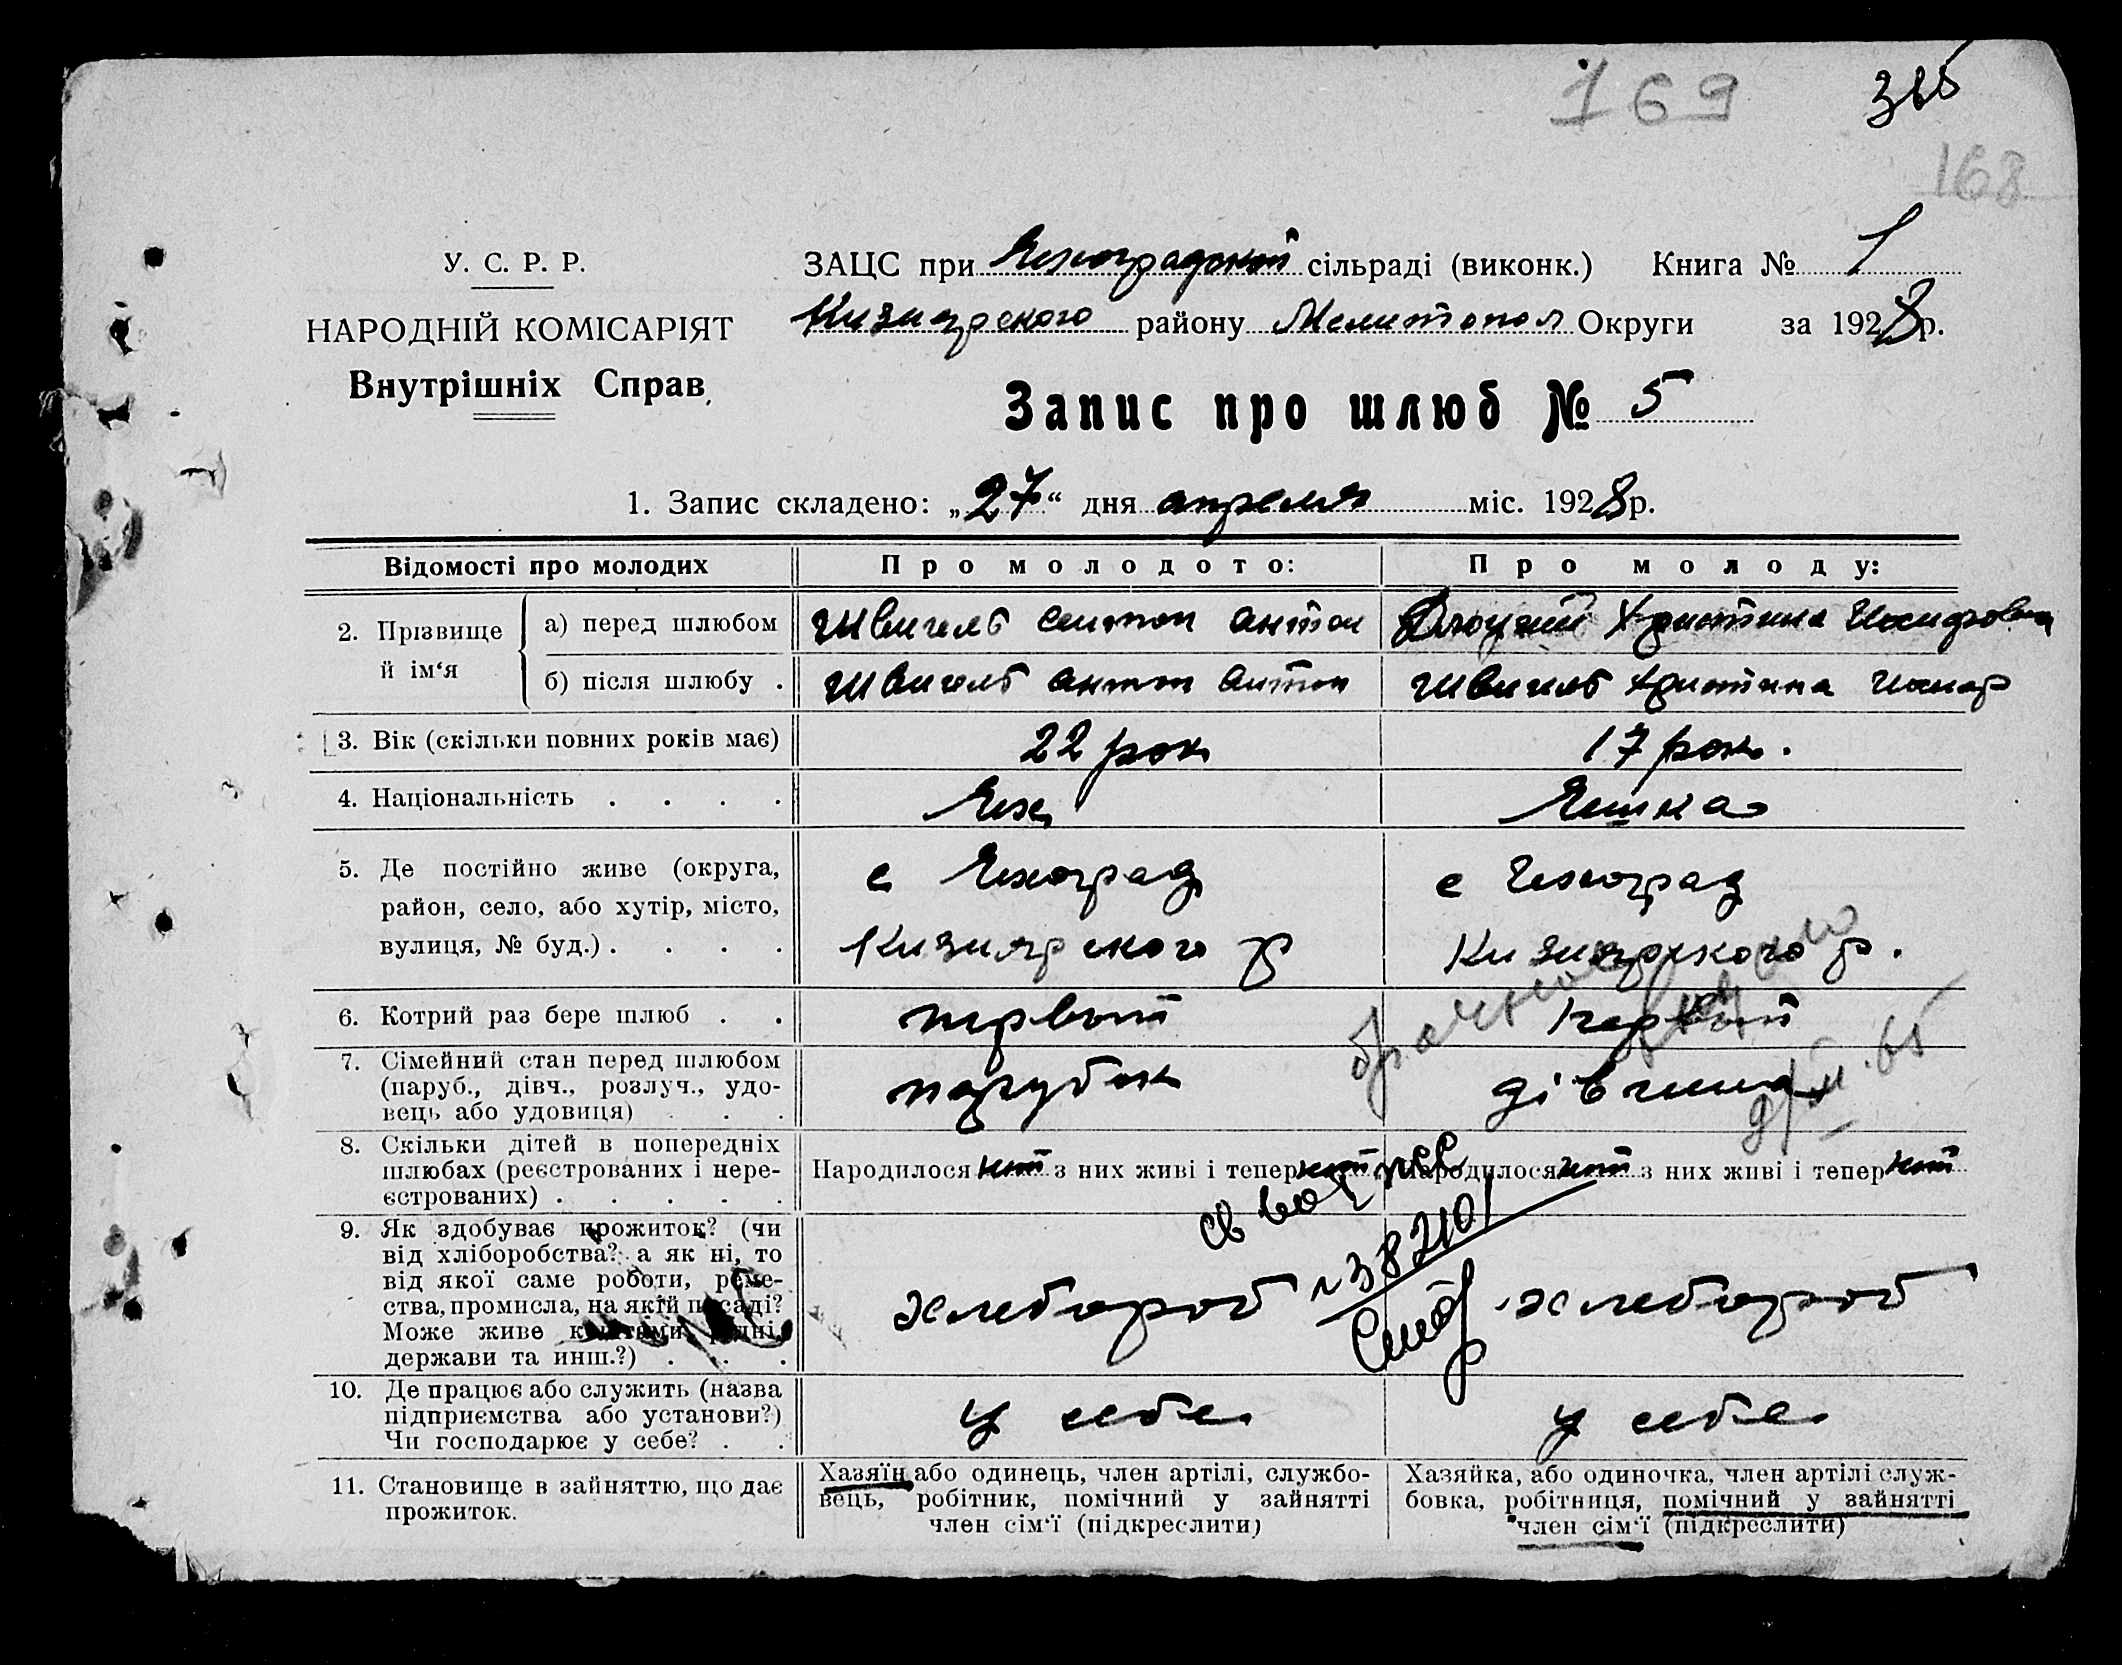 169
168
У. С. Р. Р.
НАРОДНІЙ КОМІСАРІЯТ
Внутрішніх Справ
ЗАЦС при Чехоградской сільраді (виконк.) Книга № 1
Кизиярского району Мелитопол Округи за 1928 р.
Запис про шлюб № 5
1. Запис складено: „27“ дня апреля міс. 1928 р.
Відомості про молодих
Про молодого:
Про молоду:
2. Прізвище й ім‘я
а) перед шлюбом
Швигель Антон
Христина Иосифовна
б) після шлюбу .
Швигель Антон Антон
Швигель Христина Иосиф
3. Вік (скільки повних років має)
22 рок
17 рок.
4. Національність . . . .
Чех
Чешка
5. Де постійно живе (округа,
район, село, або хутір, місто,
вулиця, № буд.) . . . .
с Чехоград
Кизиярского р
с Чехоград
Кизиярского р.
6. Котрий раз бере шлюб . .
первый
первый
7. Сімейний стан перед шлюбом
(паруб., дівч., розлуч., удо-
вець або удовиця) . . .
парубок
дівчина
8. Скільки дітей в попередніх
шлюбах (реєстрованих і нере-
єстрованих) . . . . .
Народилося нет з них живі і тепер нет
Народилося нет з них живі і тепер нет
9. Як здобуває прожиток? (чи
від хліборобства? а як ні, то
від якої саме роботи, реме-
ства, промисла, на якій посаді?
Може живе коштами рідні,
держави та инш.?) . . .
хлебороб
хлебороб
10. Де працює або служить (назва
підприємства або установи?)
Чи господарює у себе? . .
у себе
у себе
11. Становище в зайняттю, що дає
прожиток.
Хазяїн або одинець, член артілі, службо-
вець, робітник, помічний у зайнятті
член сім‘ї (підкреслити)
Хазяйка, або одиночка, член артілі служ-
бовка, робітниця, помічний у зайнятті
член сім‘ї (підкреслити)